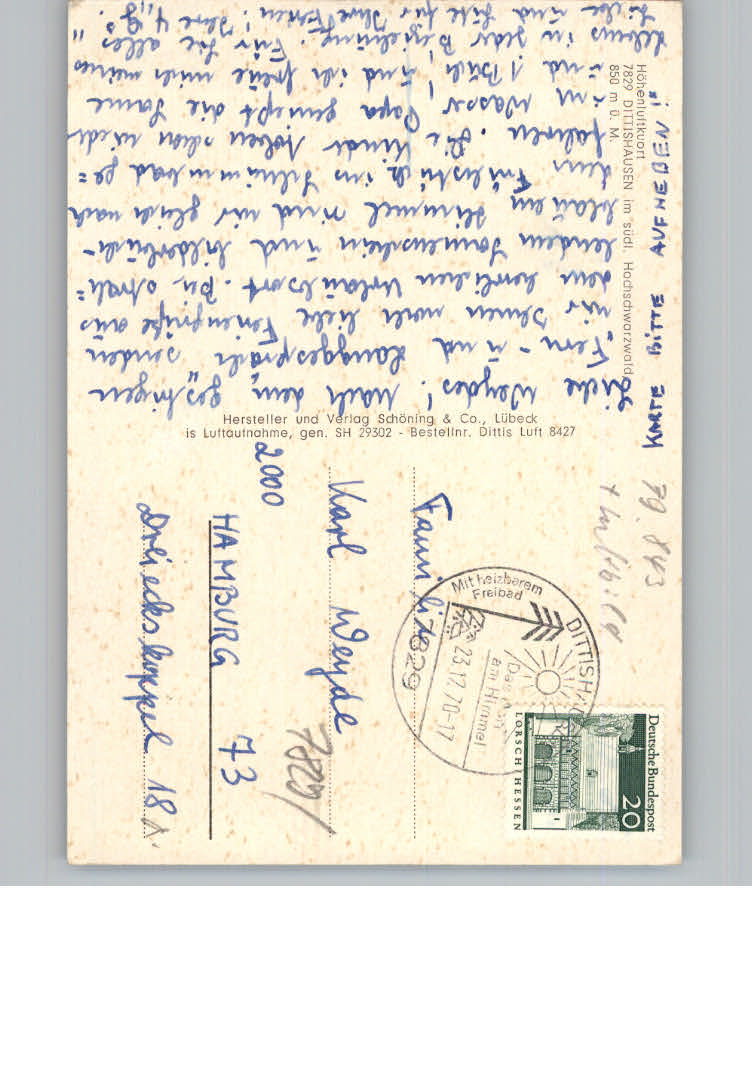 Höhenluftkurort
7829 DITTISHAUSEN im südl. Hochschwarzwald
850 m ü. M.
KARTE BITTE AUFHEBEN!"
Liebe Weydes! Nach dem „gestrigen
"Fern- und Langgespräch senden
wir Ihnen noch liebe Feriengrüße aus
dem herrlichen Urlaubsort. Bei strah=
lendem Sonnenschein und bilderbuch-
blauem Himmel sind wir gleich nach
dem Frühstück ins Schwimmbad ge=
fahren. Die Kinder toben schon wieder
im Wasser, Papa genießt die Sonne
und 1 Buch, und ich freue mich meines
Lebens in jeder Beziehung. Für Sie alles
Liebe und Gute für Ihre Ferien! Ihre 4 „g."
Hersteller und Verlag Schöning & Co., Lübeck
is Luftaufnahme, gen. SH 29302 - Bestellnr. Dittis Luft 8427
79.843
+ Luftbild
Deutsche Bundespost
20
LORSCH/HESSEN
Mit heizbarem
Freibad
DITTISHAU
am Himmel
-17
7829
Familie
Karl Weyde
7829/
2000
HAMBURG 73
Dreieckskoppel 18